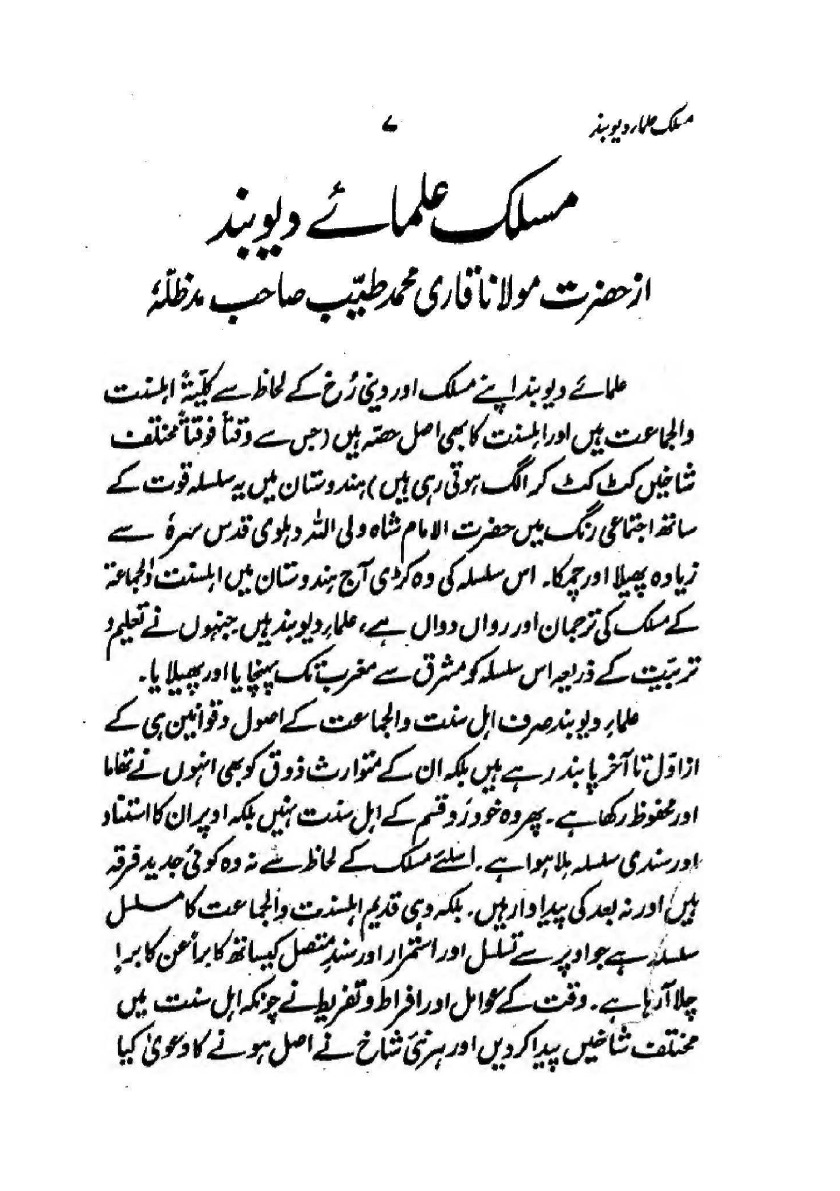 مسلک علماء دیوبند
۷
مسلک علمائے دیوبند
از حضرت مولانا قاری محمد طیّب صاحب مدظلّہٗ
علمائے دیوبند اپنے مسلک اور دینی رُخ کے لحاظ سے کلیّۃً اہلسنت
والجماعت ہیں اور اہلسنت کا بھی اصل حصّہ ہیں (جس سے وقتاً فوقتاً مختلف
شاخیں کٹ کٹ کر الگ ہوتی رہی ہیں) ہندوستان میں یہ سلسلہ قوت کے
ساتھ اجتماعی رنگ میں حضرت الامام شاہ ولی اللہ دہلوی قدس سرہٗ سے
زیادہ پھیلا اور چمکا۔ اس سلسلہ کی وہ کڑی آج ہندوستان میں اہلسنت والجماعۃ
کے مسلک کی ترجمان اور رواں دواں ہے، علماء دیوبند ہیں جنہوں نے تعلیم و
تربیّت کے ذریعہ اس سلسلہ کو مشرق سے مغرب تک پہنچایا اور پھیلایا۔
علماء دیوبند صرف اہل سنت والجماعت کے اصول و قوانین ہی کے
از اوّل تا آخر پابند رہے ہیں بلکہ ان کے متوارث ذوق کو بھی انہوں نے تھاما
اور محفوظ رکھا ہے۔ پھر وہ خود رَو قسم کے اہل سنت نہیں بلکہ اوپر ان کا استناد
اور سندی سلسلہ ملا ہوا ہے۔ اسلئے مسلک کے لحاظ سے نہ وہ کوئی جدید فرقہ
ہیں اور نہ بعد کی پیداوار ہیں۔ بلکہ وہی قدیم اہلسنت والجماعت کا مسلسل
سلسلہ ہے جو اوپر سے تسلسل اور استمرار اور سندِ متصل کیساتھ کابراً عن کابرٍ
چلا آرہا ہے۔ وقت کے عوامل اور افراط و تفریط نے چونکہ اہل سنت میں
مختلف شاخیں پیدا کردیں اور ہر نئی شاخ نے اصل ہونے کا دعویٰ کیا